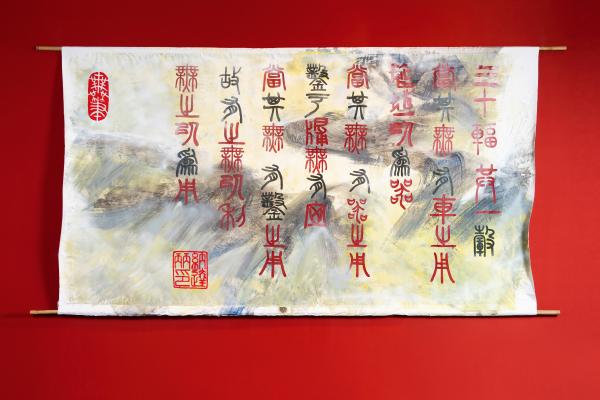 三十輻共一轂
當其無有車之用
埏埴以為器
當其無有器之用
鑿戶牖無有
當其無有鑿之用
故有之無以利
無之以為用